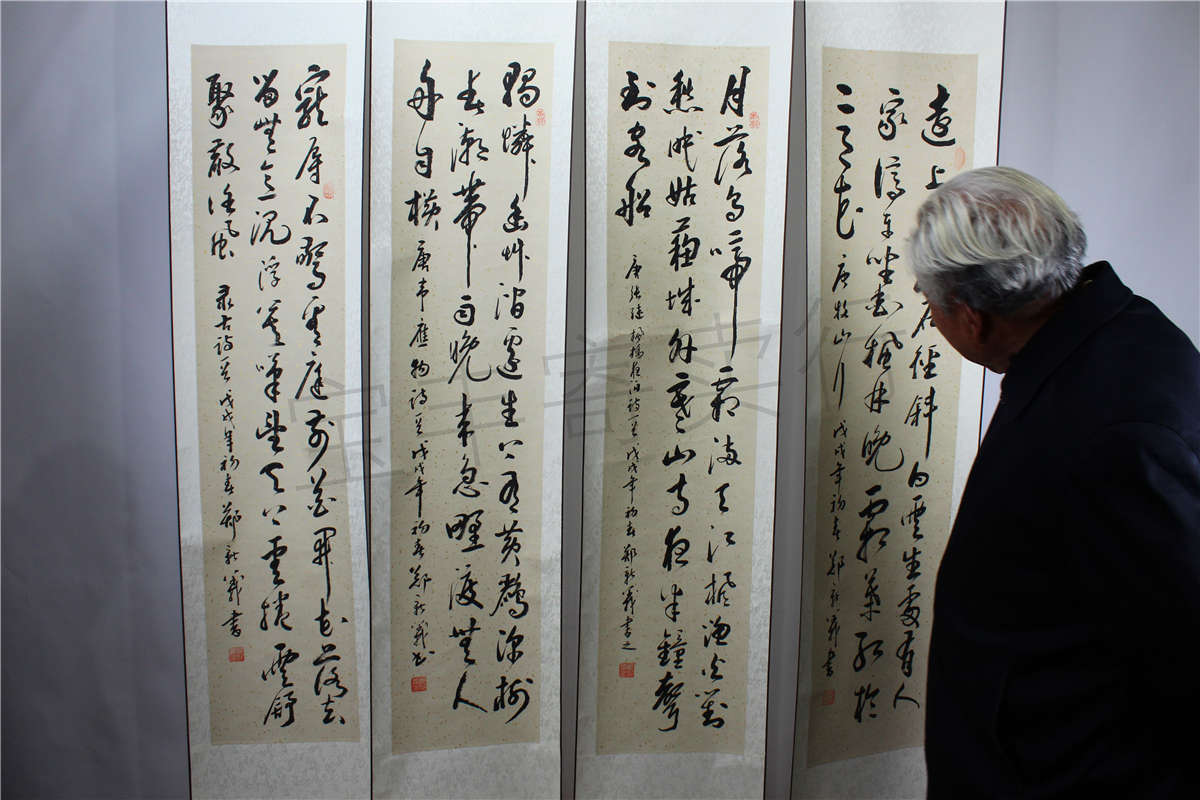 遠上石徑斜白雲生處有人
家停車坐愛楓林晚霜葉紅於
二月花 唐杜牧山行 戊戌年初春鄭新義書
月落烏啼霜滿天江楓漁火對
愁眠姑蘇城外寒山寺夜半鐘聲
到客船 唐張繼楓橋夜泊詩一首戊戌年初春鄭新義書之
獨憐幽草澗邊生上有黃鸝深樹
春潮帶雨晚來急野渡無人
舟自橫 唐韋應物詩一首戊戌年初春鄭新義書
寵辱不驚看庭前花開花落去
留無意沉浮笑望天上雲捲雲舒
聚散任風 录古詩一首戊戌年初春鄭新義書